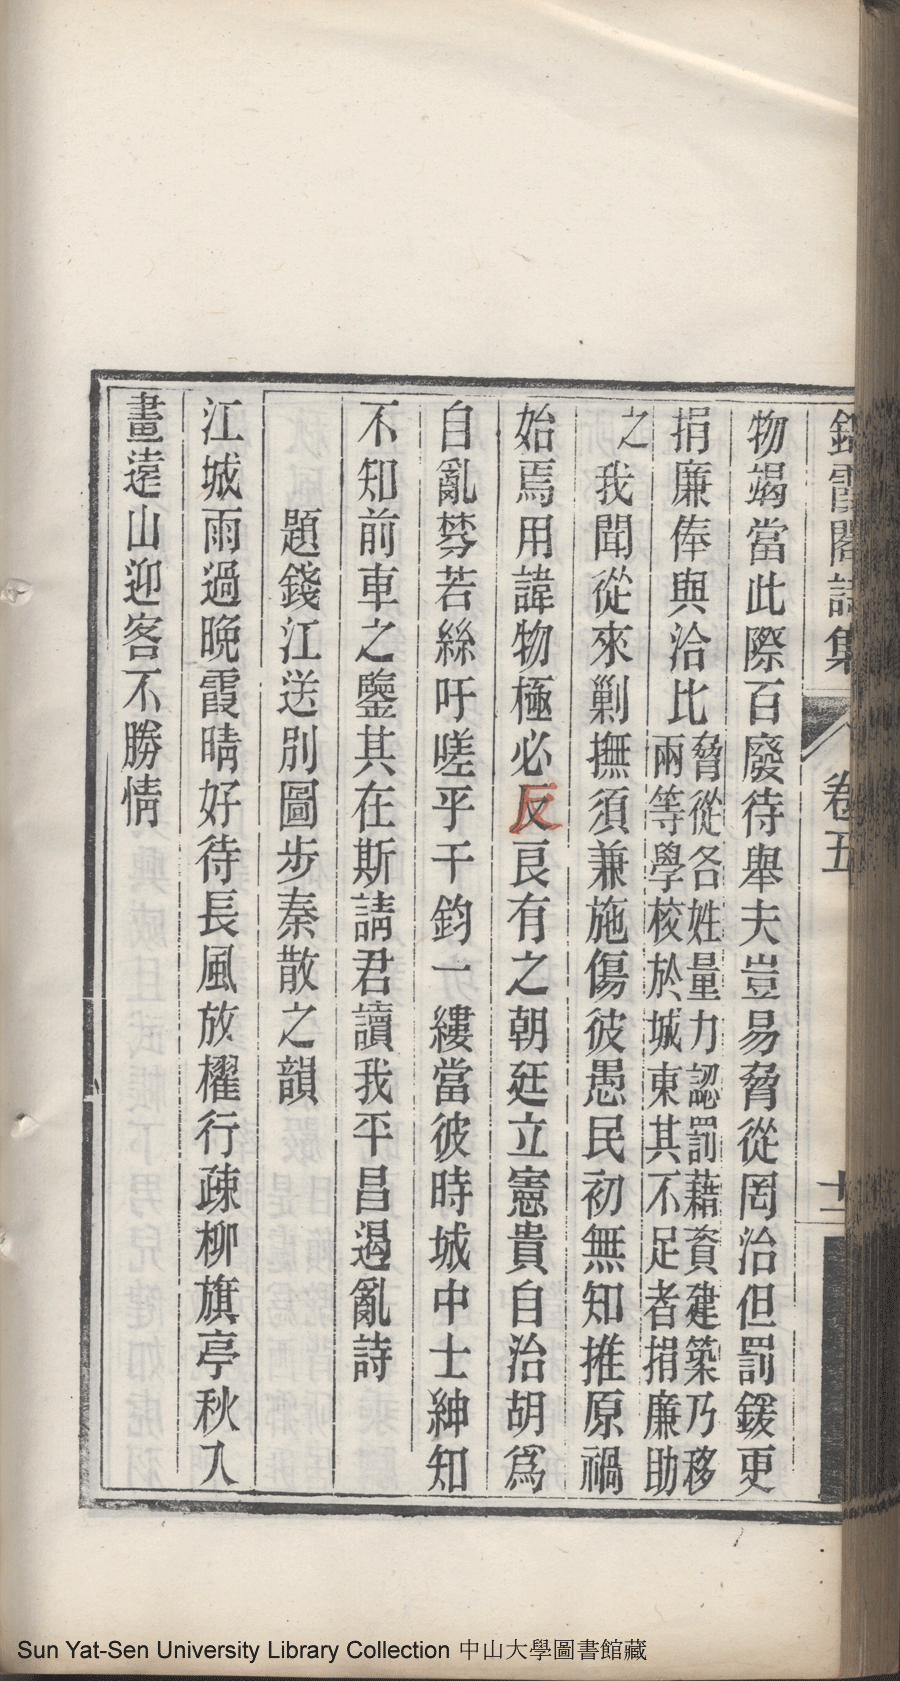 霞閣詩集 卷五 十一
物竭當此際百廢待舉夫豈易脅從罔治但罰鍰更
捐廉俸與洽比脅從各姓量力認罰藉資建築乃移
兩等學校於城東其不足者捐廉助
之我聞從來剿撫須兼施傷彼愚民初無知推原禍
始焉用諱物極必反良有之朝廷立憲貴自治胡爲
自亂棼若絲吁嗟乎千鈞一縷當彼時城中士紳知
不知前車之鑒其在斯請君讀我平昌遏亂詩
題錢江送別圖步秦散之韻
江城雨過晚霞晴好待長風放櫂行疎柳旗亭秋入
畫遠山迎客不勝情
Sun Yat-Sen University Library Collection 中山大學圖書館藏